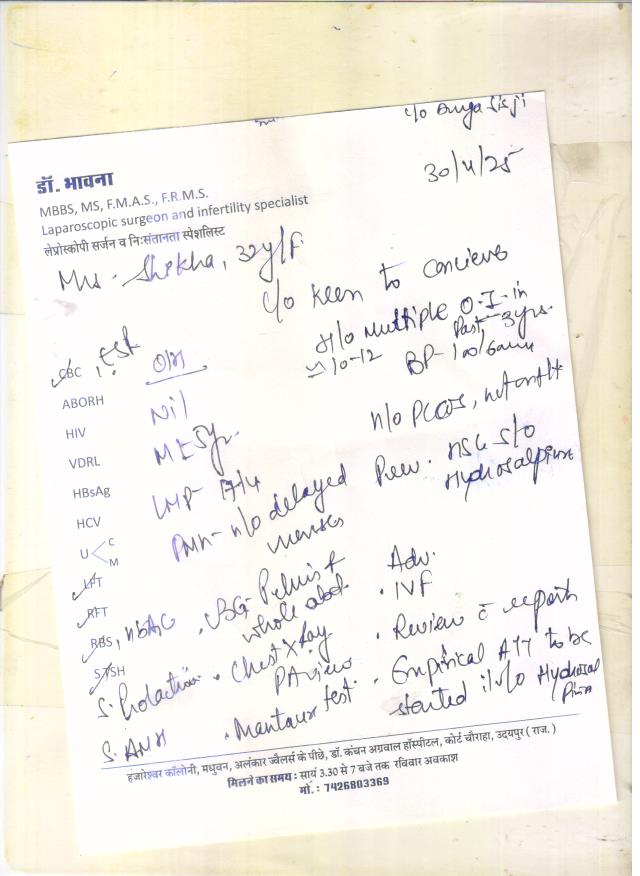 c/o Durga Sisji
30/4/25
डॉ. भावना
MBBS, MS, F.M.A.S., F.R.M.S.
Laparoscopic surgeon and infertility specialist
लेप्रोस्कोपी सर्जन व निःसंतानता स्पेशलिस्ट
Mrs. Shikha, 32y/F
c/o Keen to concieve
H/o Multiple O.I. in
Past 3yrs.
10-12
BP- 100/60
CBC, ESR
ABORH
Nil
HIV
VDRL
ML 5yr
HBsAg
LMP- 17/4
HCV
H/o PCOS
Prev. HSG s/o
Hydrosalpinx
h/o delayed
menses
U C
M
LFT
RFT
RBS, HbA1C
STSH
S. Prolactin
S. AMH
USG- Pelvis +
whole abd
Chest X Ray
PA view
Mantoux test
Adv.
IVF
Review c reports
Empirical ATT to be
started i/v/o Hydrosal
pinx
हजारेश्वर कॉलोनी, मधुवन, अलंकार ज्वैलर्स के पीछे, डॉ. कंचन अग्रवाल हॉस्पीटल, कोर्ट चौराहा, उदयपुर ( राज. )
मिलने का समय : सायं 3.30 से 7 बजे तक रविवार अवकाश
मो. : 7426803369